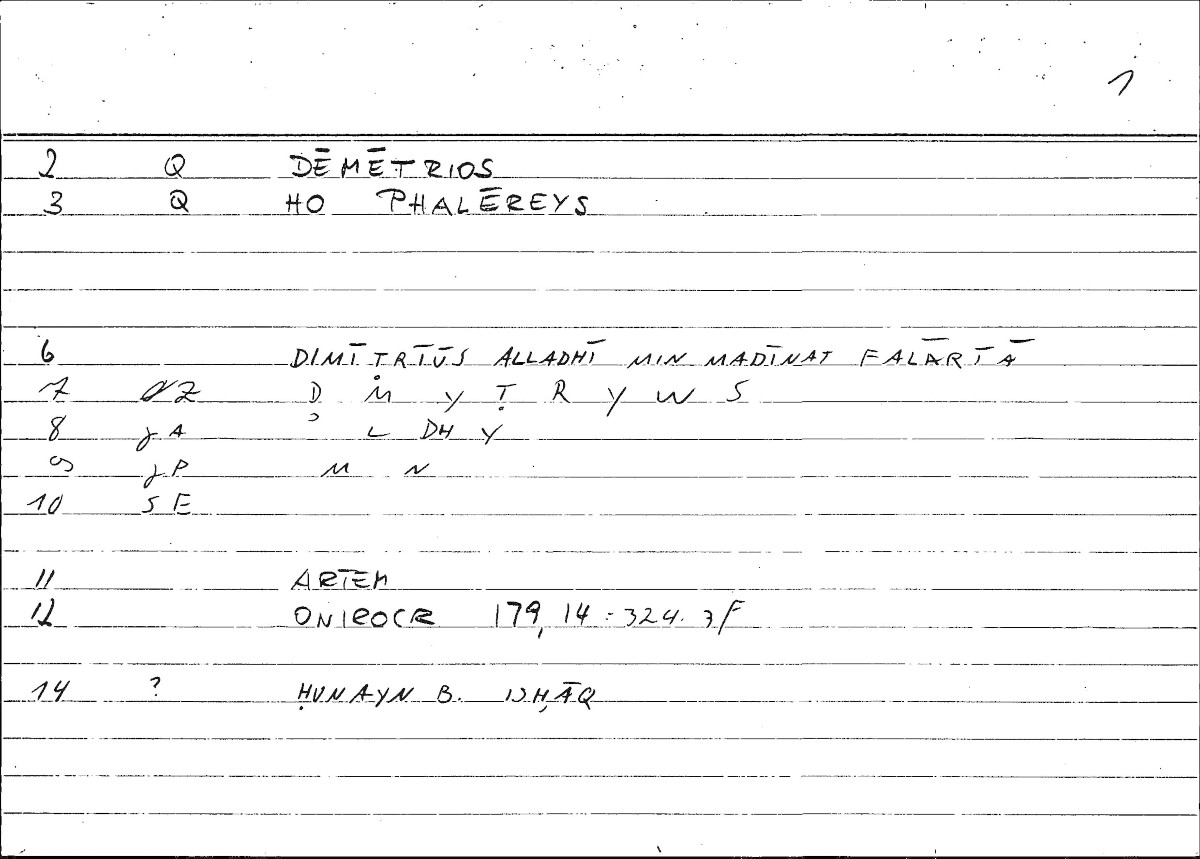 1
2 Q DĒMĒTRIOS
3 Q HO PHALĒREYS
6 DIMĪTRĪŪS ALLADHĪ MIN MADĪNAT FALĀRĪĀ
7 Z D M Y Ṭ R Y W S
8 jA ʾ L DH Y
9 jP M N
10 SE
11 ARTEM
12 ONIROCR 179,14 : 324.3f
14 ? ḤUNAYN B. ISḤĀQ